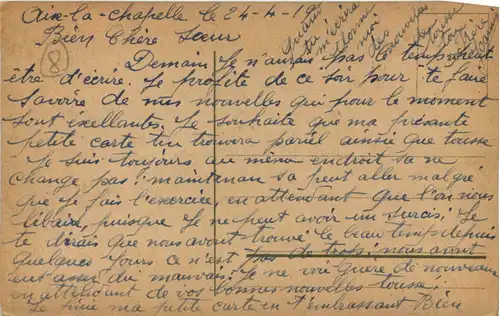 Aix-la-chapelle le 24-4-19
Bien Chère Sœur
Quand tu m'écrira donne moi des nouvelles
Demain Je n'aurais pas le temp
être d'écrire. Je profite de ce soir pour te faire
savoire de mes nouvelles qui pour le moment
sont exellantes. Je souhaite que ma présante
petite carte tu trouvera pariél ainsie que tousse
Je suis toujours au même endroit sa ne
change pas! maintenan sa peut aller malgré
que je fais l'exercice, en attendant que l'on nous
libaire, puisque Je ne peut avoir un sursis. Je
te dirais que nous avont trouvé le beau temp depuis
quelques Jours ce n'est pas de trops! nous avont
eut assez du mauvais! Je ne voi guere de nouveau
en attendent de vos bonnes nouvelles tousse!
Je fini ma petite carte en t'embrassant Bien